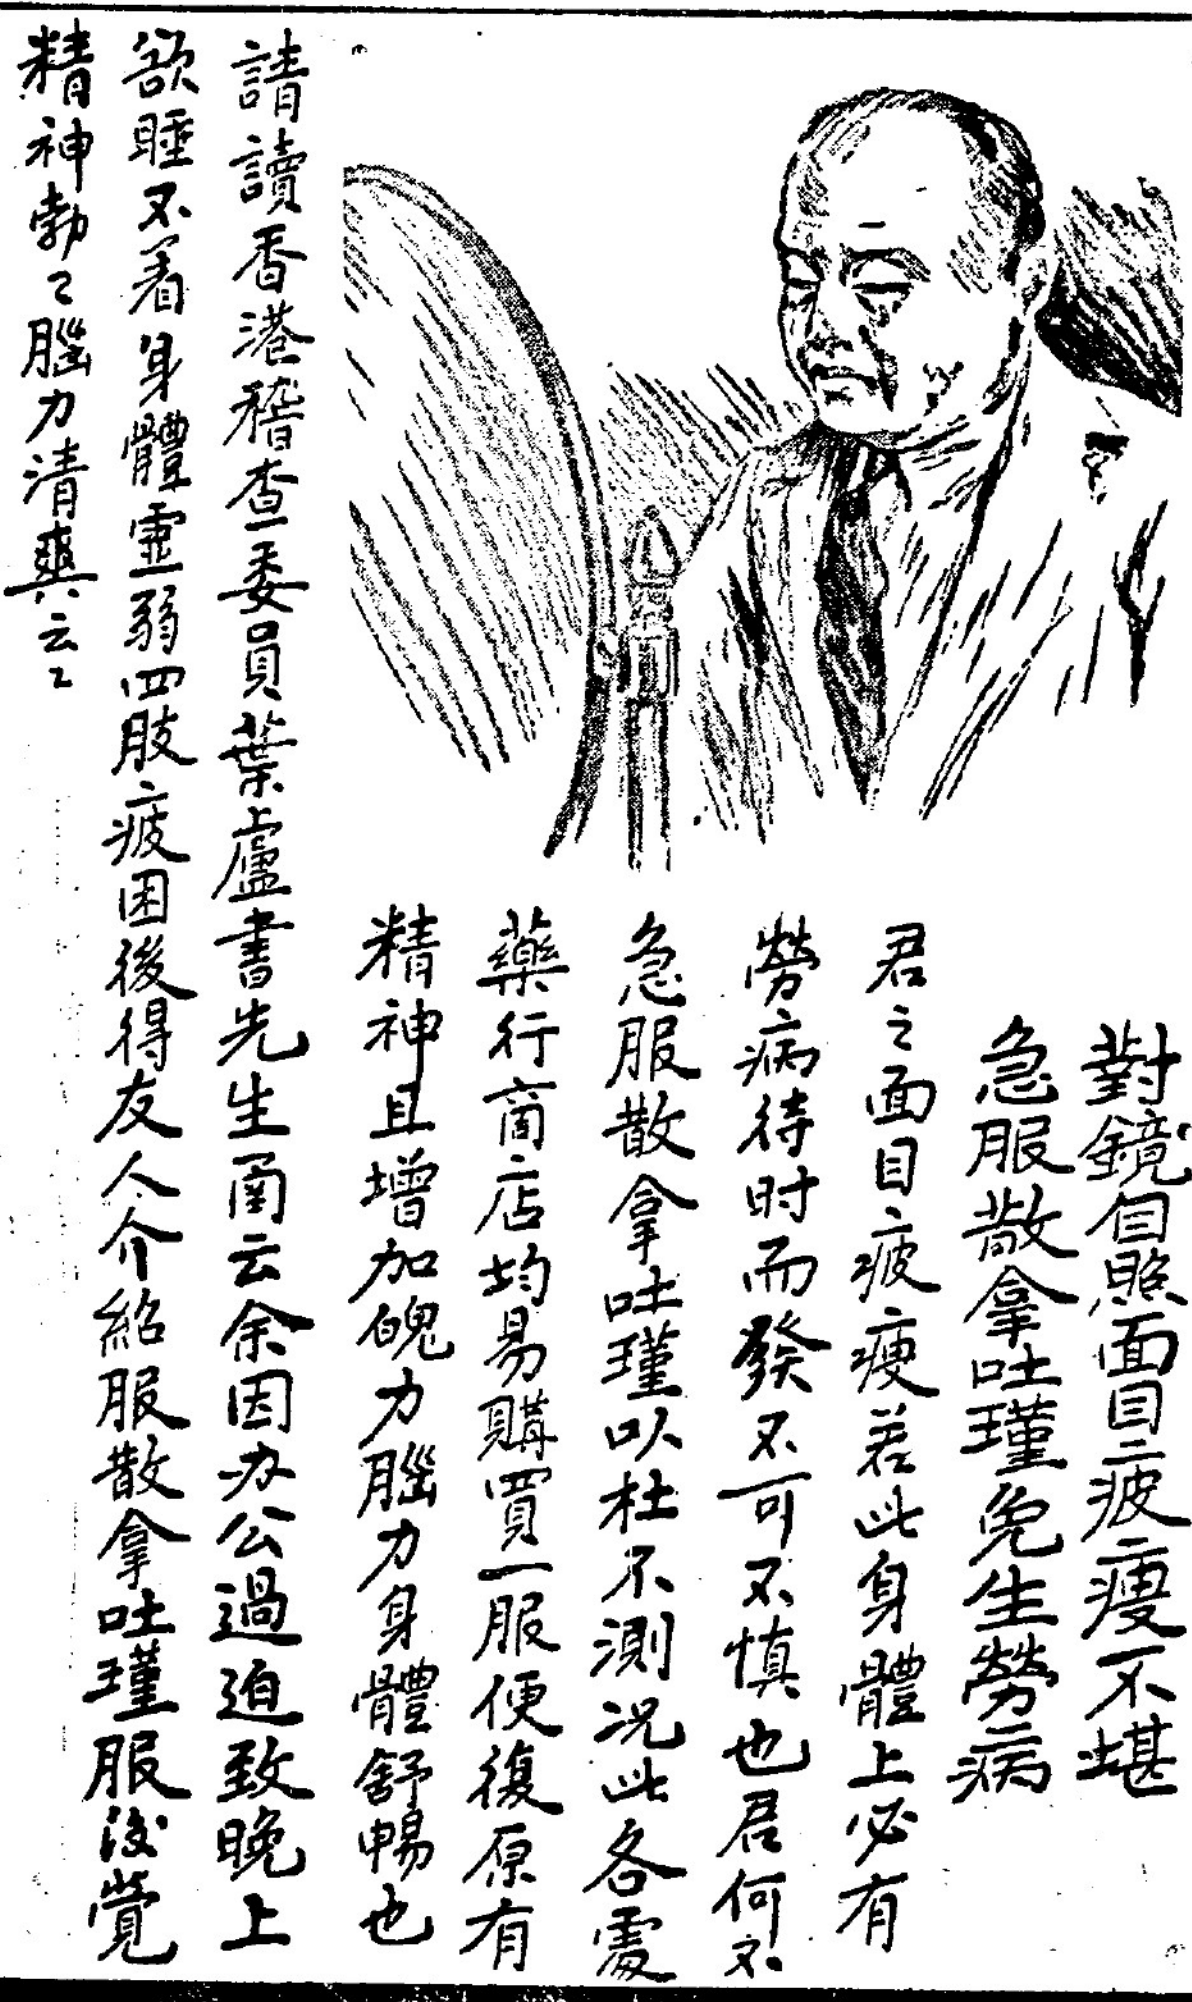 對鏡自照面目疲瘦不堪
急服散拿吐瑾免生勞病
君之面目疲瘦若此身體上必有
勞病待时而發不可不慎也君何不
急服散拿吐瑾以杜不測况此各處
藥行商店均易購買一服便復原有
精神且增加魄力腦力身體舒暢也
請讀香港稽查委員葉盧書先生函云余因办公過迫致晚上
欲睡不着身體虛弱四肢疲困後得友人介紹服散拿吐瑾服後覺
精神勃〻腦力清爽云〻